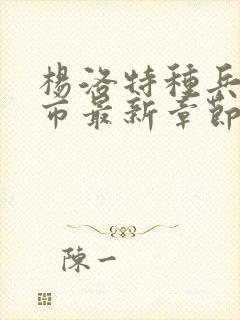 楊洛特種兵
市最新章節
陳一